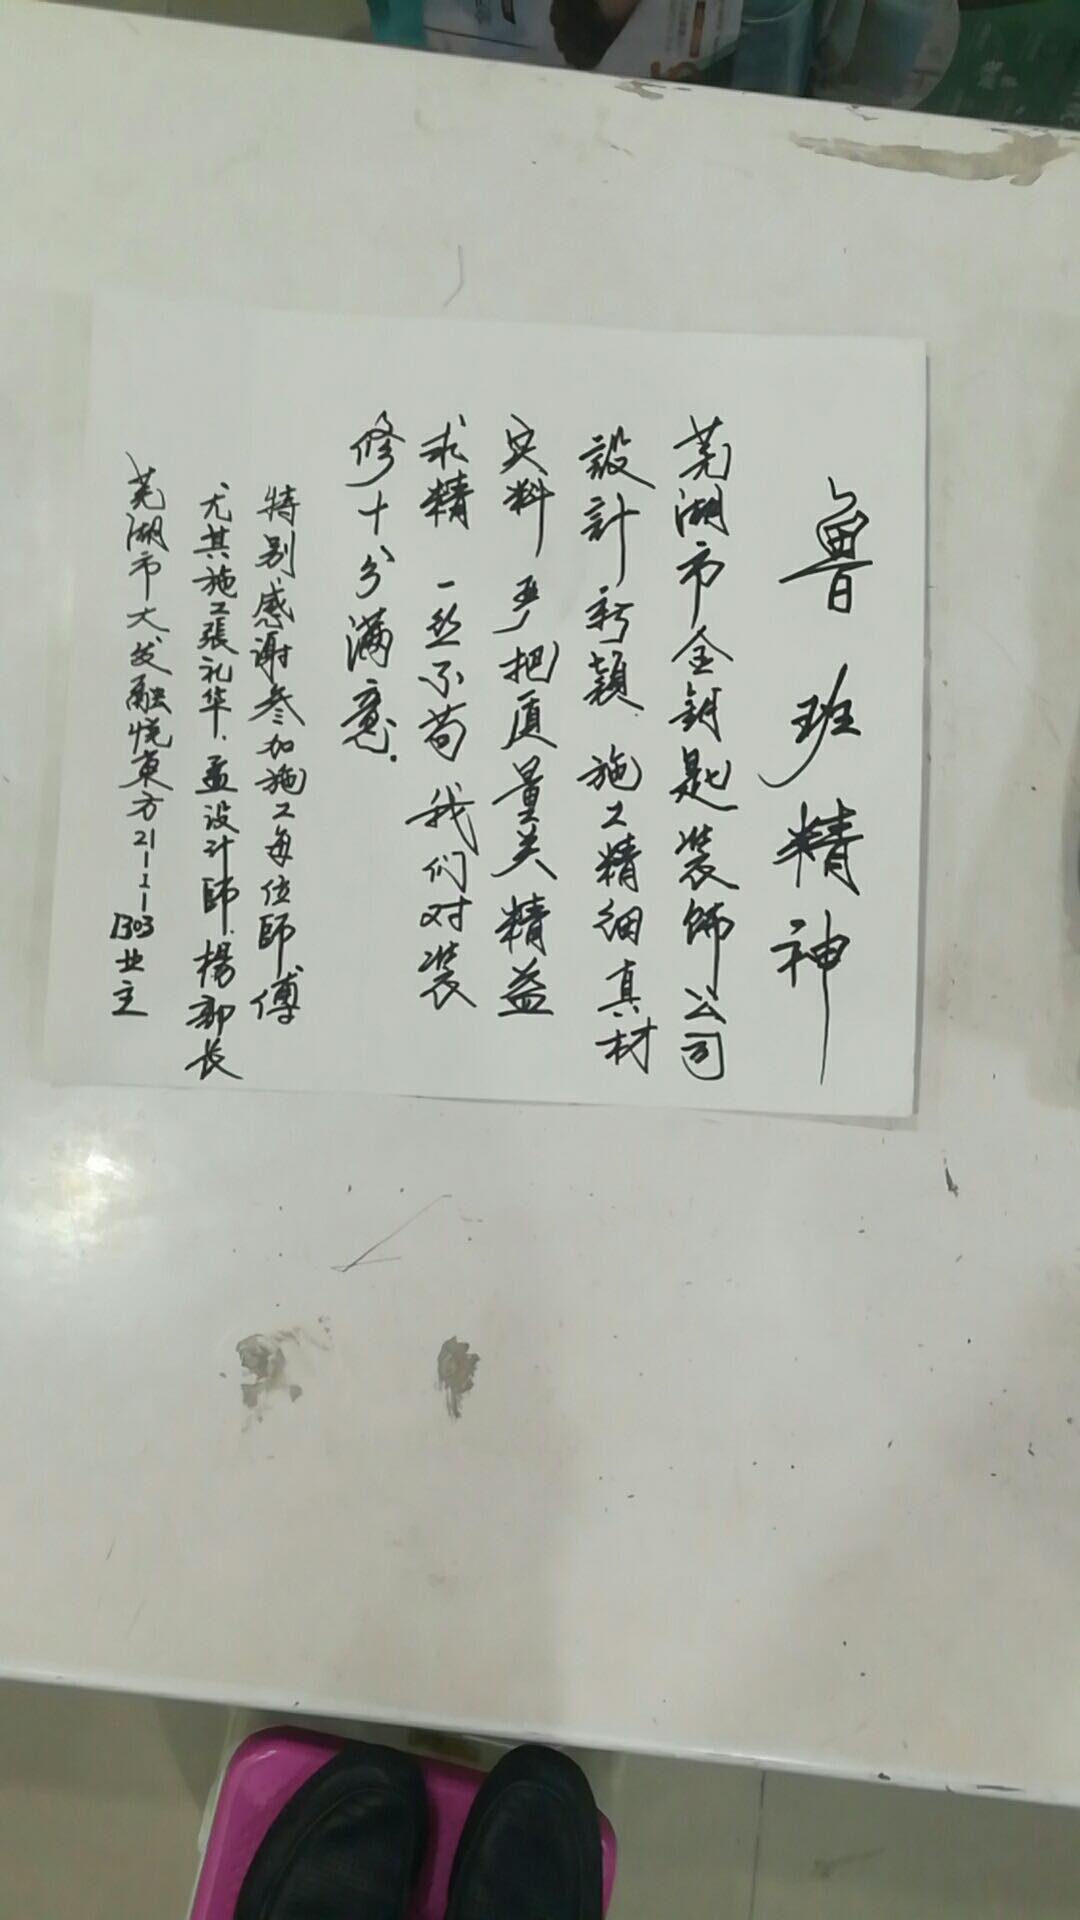 魯班精神
芜湖市金钥匙装饰公司
設計新穎.施工精细真材
实料严把质量关精益
求精一丝不苟我们对装
修十分满意.
特别感谢参加施工每位師傅
尤其施工張礼华.孟设计師.楊部长
芜湖市大发融悦東方21-1-1303业主